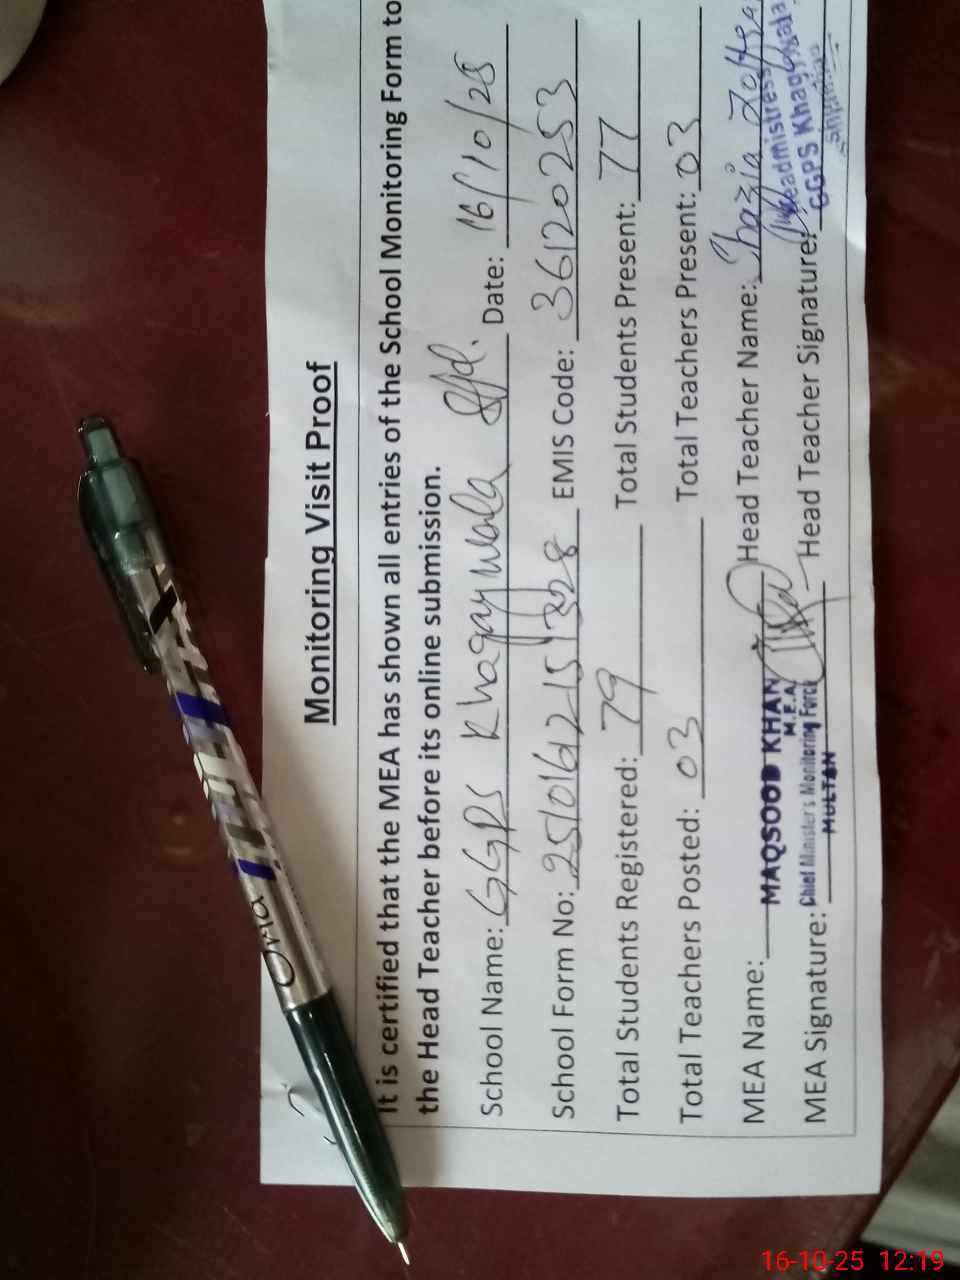 Monitoring Visit Proof
It is certified that the MEA has shown all entries of the School Monitoring Form to
the Head Teacher before its online submission.
School Name: GGPS Khagaywala Date: 16/10/25
School Form No: EMIS Code: 36120253
Total Students Registered: 79 Total Students Present: 77
Total Teachers Posted: 03 Total Teachers Present: 03
MEA Name: MAQSOOD KHAN Head Teacher Name: Shazia
M.E.A
Chief Minister's Monitoring Force
MULTAN
MEA Signature: Head Teacher Signature:
Headmistress
GGPS Khaggywala
16-10-25 12:19